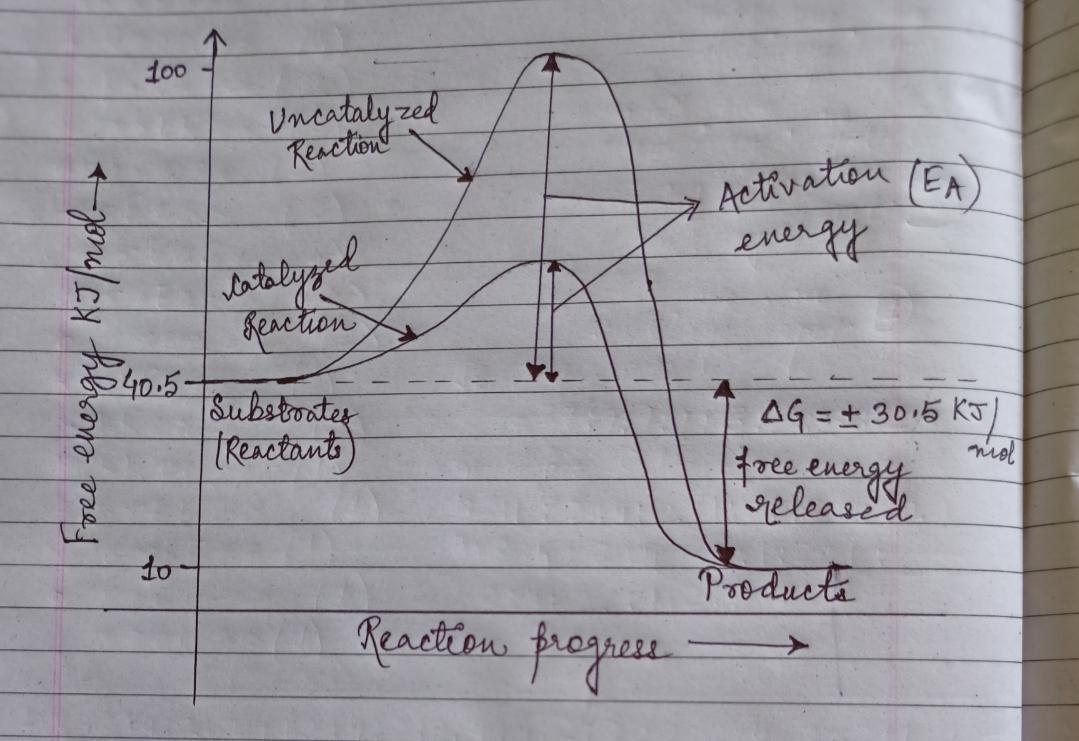 100
Uncatalyzed
Reaction
Activation (EA)
energy
Catalyzed
Reaction
Free energy KJ/mol
40.5
Substrates
(Reactants)
ΔG = ± 30.5 KJ/
mol
free energy
released
10
Products
Reaction progress